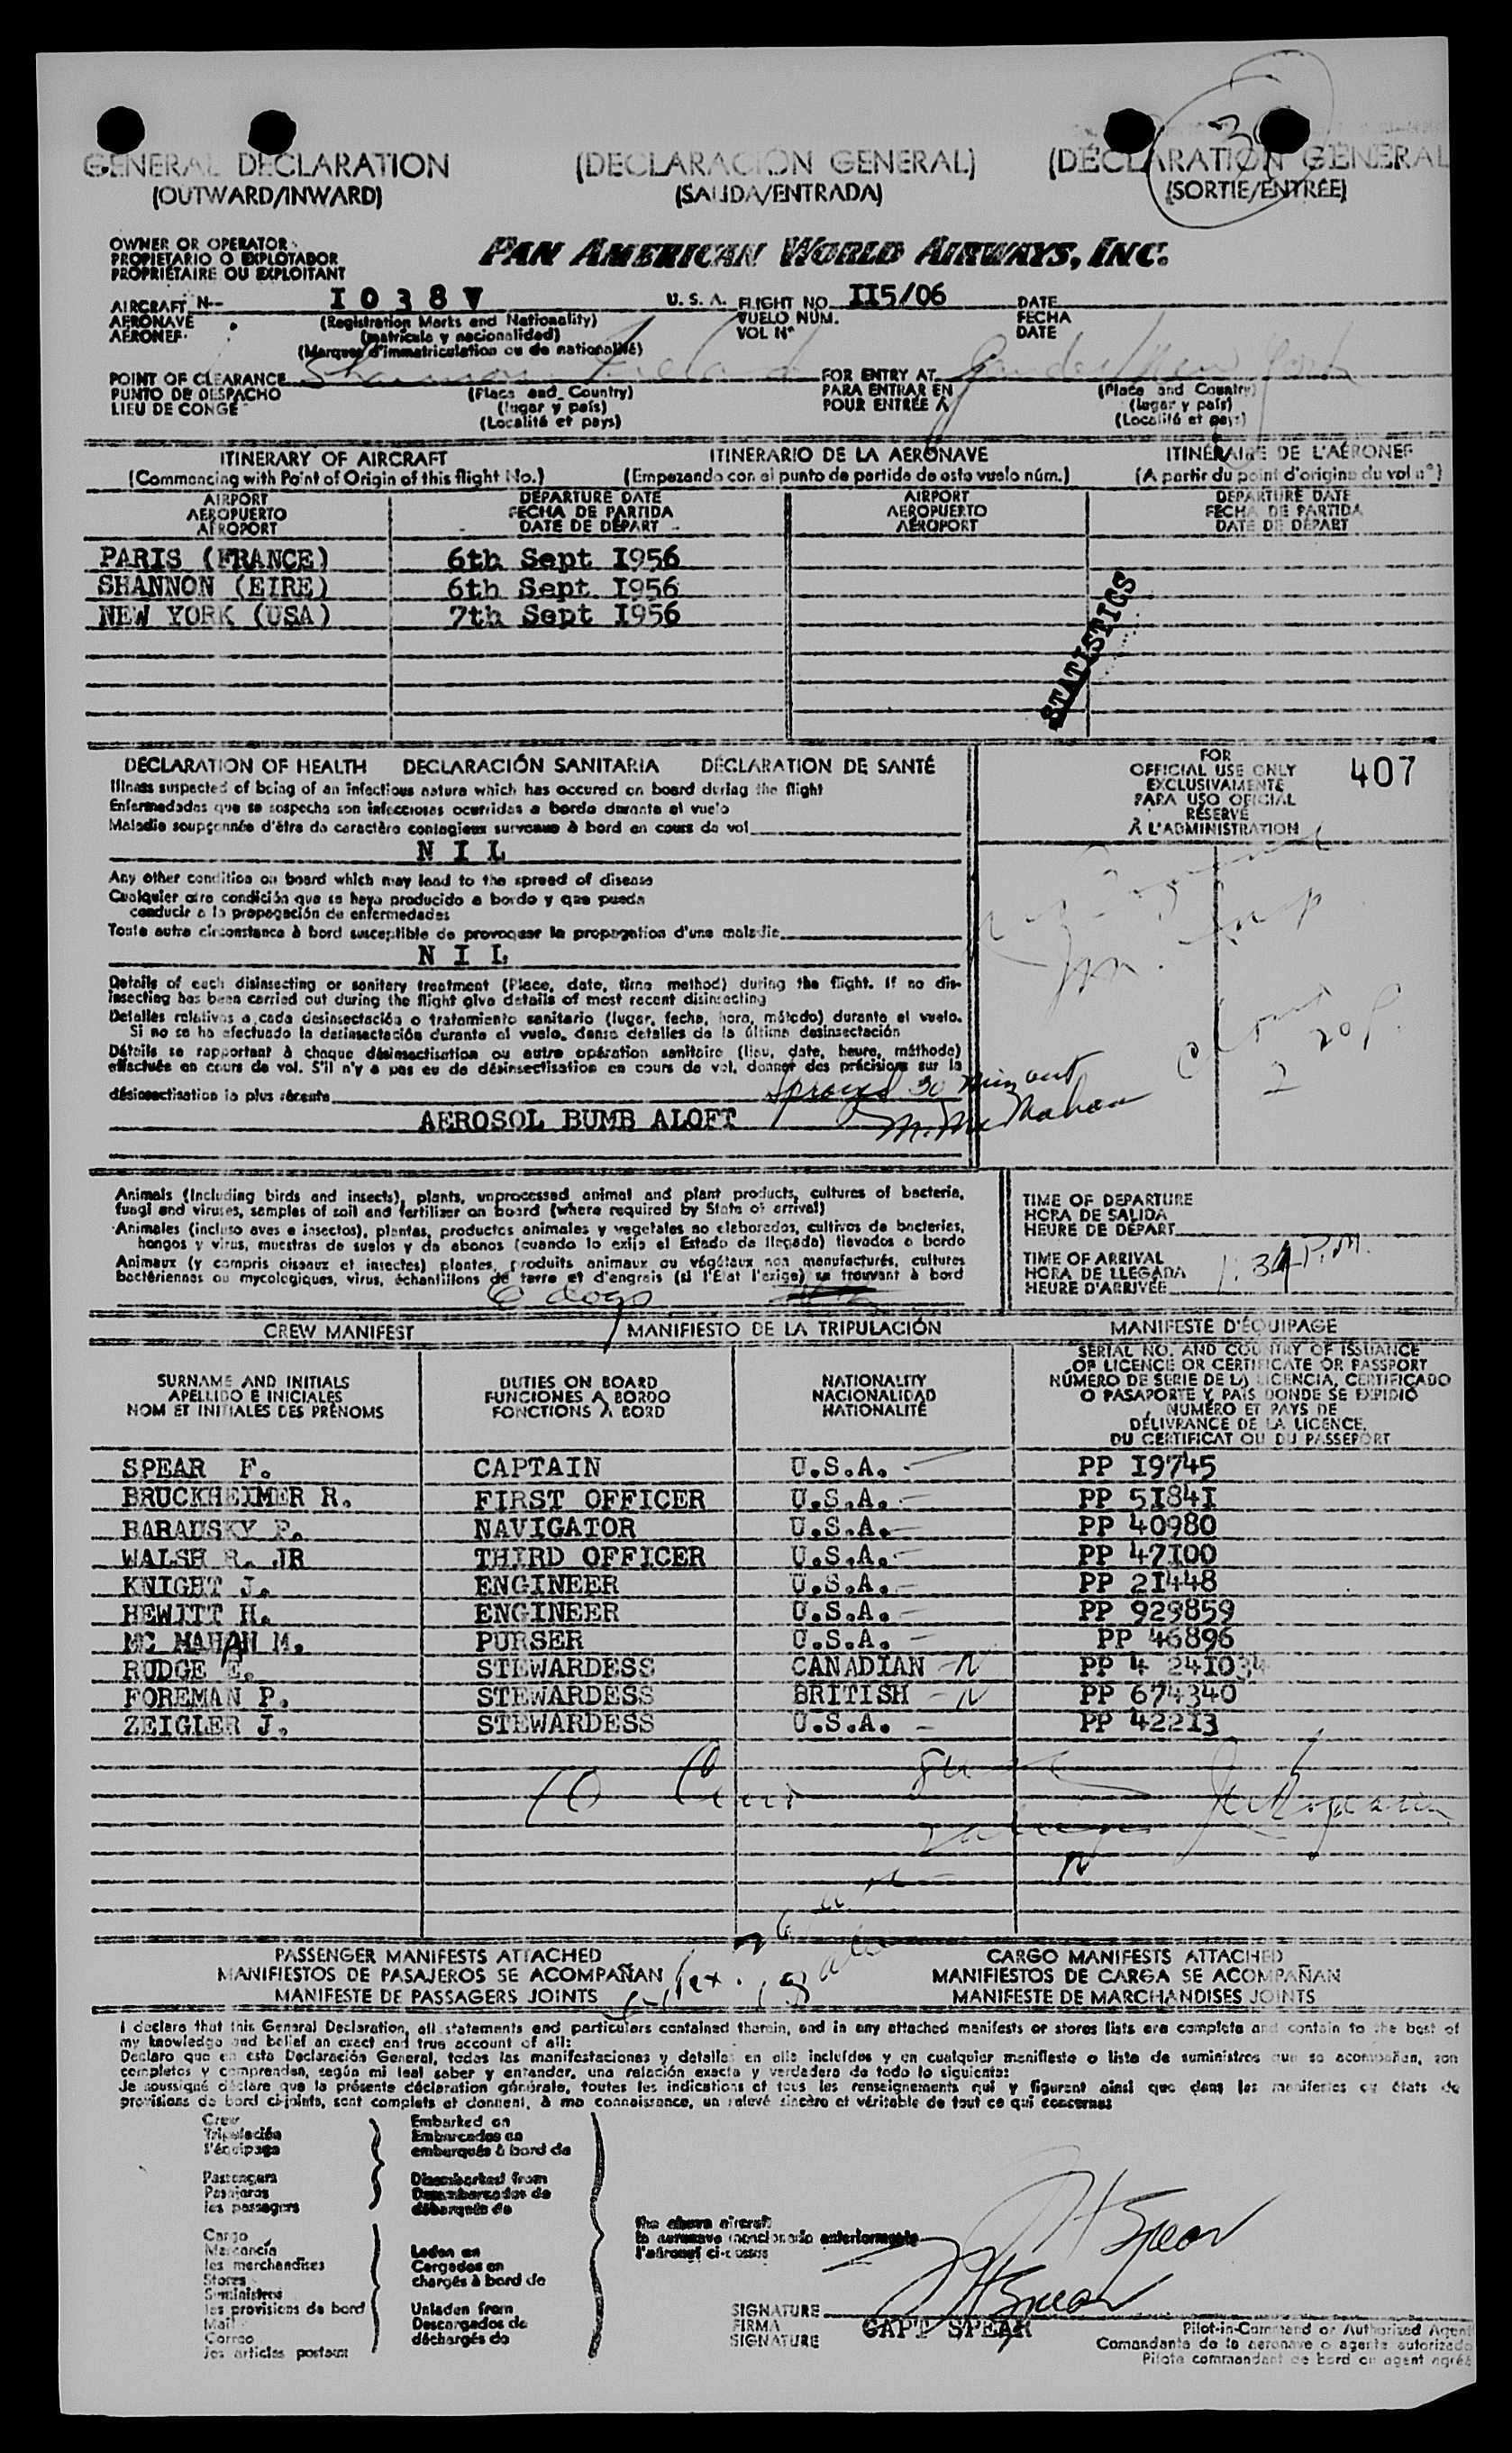 GENERAL DECLARATION (DECLARACION GENERAL) (DÉCLARATION GENERAL
(OUTWARD/INWARD) (SALIDA/ENTRADA) (SORTIE/ENTRÉE)
OWNER OR OPERATOR
PROPIETARIO O EXPLOTADOR
PROPRIÉTAIRE OU EXPLOITANT
PAN AMERICAN WORLD AIRWAYS, INC.
AIRCRAFT N-- I 0 3 8 V U. S. A. FLIGHT NO. II5/06 DATE
AERONAVE (Registration Marks and Nationality) VUELO NÚM. FECHA
AERONEF (matrícula y nacionalidad) VOL Nº DATE
(Marques d'immatriculation ou de nationalité)
POINT OF CLEARANCE Shannon Ireland FOR ENTRY AT Gander/New York
PUNTO DE DESPACHO (Place and Country) PARA ENTRAR EN (Place and Country)
LIEU DE CONGÉ (lugar y país) POUR ENTRÉE À (lugar y país)
(Localité et pays) (Localité et pays)
ITINERARY OF AIRCRAFT ITINERARIO DE LA AERONAVE ITINÉRAIRE DE L'AÉRONEF
(Commencing with Point of Origin of this flight No.) (Empezando con el punto de partida de este vuelo núm.) (A partir du point d'origine du vol nº)
AIRPORT DEPARTURE DATE AIRPORT DEPARTURE DATE
AEROPUERTO FECHA DE PARTIDA AEROPUERTO FECHA DE PARTIDA
AÉROPORT DATE DE DÉPART AÉROPORT DATE DE DÉPART
PARIS (FRANCE) 6th Sept I956
SHANNON (EIRE) 6th Sept I956
NEW YORK (USA) 7th Sept I956
STATISTICS
DECLARATION OF HEALTH DECLARACIÓN SANITARIA DÉCLARATION DE SANTÉ
Illness suspected of being of an infectious nature which has occured on board during the flight
Enfermedades que se sospecha son infecciosas ocurridas a bordo durante el vuelo
Maladie soupçonnée d'être de caractère contagieux survenue à bord en cours de vol
N I L
FOR
OFFICIAL USE ONLY
EXCLUSIVAMENTE
PARA USO OFICIAL
RÉSERVÉ
À L'ADMINISTRATION
407
Any other condition on board which may lead to the spread of disease
Cualquier otra condición que se haya producido a bordo y que pueda
conducir a la propagación de enfermedades
Toute autre circonstance à bord susceptible de provoquer la propagation d'une maladie
N I L
Details of each disinsecting or sanitary treatment (Place, date, time method) during the flight. If no dis-
insecting has been carried out during the flight give details of most recent disinsecting
Detalles relativos a cada desinsectación o tratamiento sanitario (lugar, fecha, hora, método) durante el vuelo.
Si no se ha efectuado la desinsectación durante el vuelo, dense detalles de la última desinsectación
Détails se rapportant à chaque désinsectisation ou autre opération sanitaire (lieu, date, heure, méthode)
effectuée en cours de vol. S'il n'y a pas eu de désinsectisation en cours de vol, donner des précisions sur la
désinsectisation la plus récente Sprayed 30 Mins out
AEROSOL BUMB ALOFT M. McMahan
Animals (Including birds and insects), plants, unprocessed animal and plant products, cultures of bacteria,
fungi and viruses, samples of soil and fertilizer on board (where required by State of arrival)
Animales (incluso aves e insectos), plantas, productos animales y vegetales no elaborados, cultivos de bacterias,
hongos y virus, muestras de suelos y de abonos (cuando lo exija el Estado de llegada) llevados a bordo
Animaux (y compris oiseaux et insectes) plantes, produits animaux ou végétaux non manufacturés, cultures
bactériennes ou mycologiques, virus, échantillons de terre et d'engrais (si l'État l'exige) se trouvant à bord
6 dogs
TIME OF DEPARTURE
HORA DE SALIDA
HEURE DE DÉPART
TIME OF ARRIVAL
HORA DE LLEGADA
HEURE D'ARRIVÉE 1:34 P.M.
CREW MANIFEST MANIFIESTO DE LA TRIPULACIÓN MANIFESTE D'ÉQUIPAGE
SURNAME AND INITIALS
APELLIDO E INICIALES
NOM ET INITIALES DES PRÉNOMS
DUTIES ON BOARD
FUNCIONES A BORDO
FONCTIONS À BORD
NATIONALITY
NACIONALIDAD
NATIONALITÉ
SERIAL NO. AND COUNTRY OF ISSUANCE
OF LICENCE OR CERTIFICATE OR PASSPORT
NÚMERO DE SERIE DE LA LICENCIA, CERTIFICADO
O PASAPORTE Y PAÍS DONDE SE EXPIDIÓ
NUMÉRO ET PAYS DE
DÉLIVRANCE DE LA LICENCE,
DU CERTIFICAT OU DU PASSEPORT
SPEAR F. CAPTAIN U.S.A. PP I9745
BRUCKHEIMER R. FIRST OFFICER U.S.A. PP 5I84I
BARAUSKY F. NAVIGATOR U.S.A. PP 40980
WALSH R. JR THIRD OFFICER U.S.A. PP 47I00
KNIGHT J. ENGINEER U.S.A. PP 2I448
HEWITT H. ENGINEER U.S.A. PP 929859
MC MAHAN M. PURSER U.S.A. PP 46896
RUDGE E. STEWARDESS CANADIAN N PP 4 24I034
FOREMAN P. STEWARDESS BRITISH N PP 674340
ZEIGLER J. STEWARDESS U.S.A. PP 422I3
PASSENGER MANIFESTS ATTACHED CARGO MANIFESTS ATTACHED
MANIFIESTOS DE PASAJEROS SE ACOMPAÑAN MANIFIESTOS DE CARGA SE ACOMPAÑAN
MANIFESTE DE PASSAGERS JOINTS MANIFESTE DE MARCHANDISES JOINTS
I declare that this General Declaration, all statements and particulars contained therein, and in any attached manifests or stores lists are complete and contain to the best of
my knowledge and belief an exact and true account of all:
Declaro que en esta Declaración General, todas las manifestaciones y detalles en ella incluídos y en cualquier manifiesto o lista de suministros que se acompañen, son
completos y comprenden, según mi leal saber y entender, una relación exacta y verdadera de todo lo siguiente:
Je soussigné déclare que la présente déclaration générale, toutes les indications et tous les renseignements qui y figurent ainsi que dans les manifestes et états de
provisions de bord ci-joints, sont complets et donnent, à ma connaissance, un relevé sincère et véritable de tout ce qui concerne:
Crew
Tripulación
l'équipage
Passengers
Pasajeros
les passagers
Embarked on
Embarcados en
embarqués à bord de
Disembarked from
Desembarcados de
débarqués de
Cargo
Mercancía
les marchandises
Stores
Suministros
les provisions de bord
Mail
Correo
les articles postaux
Laden on
Cargados en
chargés à bord de
Unladen from
Descargados de
déchargés de
the above aircraft
la aeronave mencionada anteriormente
l'aéronef ci-dessus
Spear
Spear
SIGNATURE
FIRMA CAPT SPEAR
SIGNATURE
Pilot-in-Command or Authorized Agent
Comandante de la aeronave o agente autorizado
Pilote commandant de bord ou agent agréé